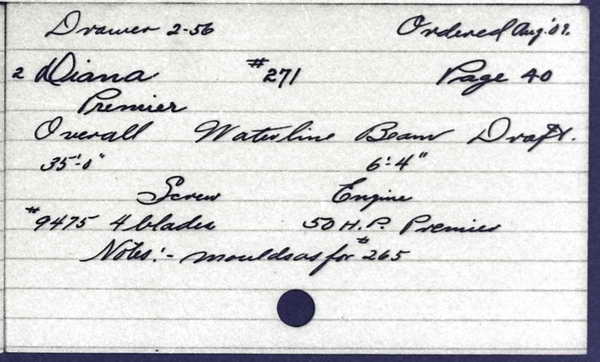 Drawer 2-56 Ordered Aug. '09.
2 Diana #271 Page 40
Premier
Overall Waterline Beam Draft.
35'-0" 6'-4"
Screw Engine
#9475 4 blades 50 H.P. Premier
Notes:- moulds as for #265